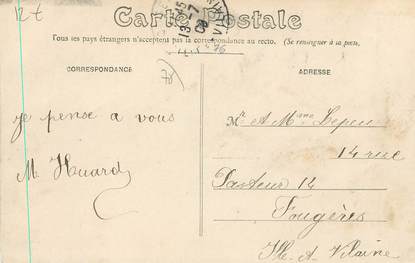 12 t
Carte Postale
Tous ses pays étrangers n'acceptent pas la correspondance au recto. (Se renseigner à la poste.
CORRESPONDANCE
ADRESSE
je pense a vous
M Huard
Mr et Mme Lepeu
14 rue
Pasteur 14
Fougères
Ille-et-Vilaine